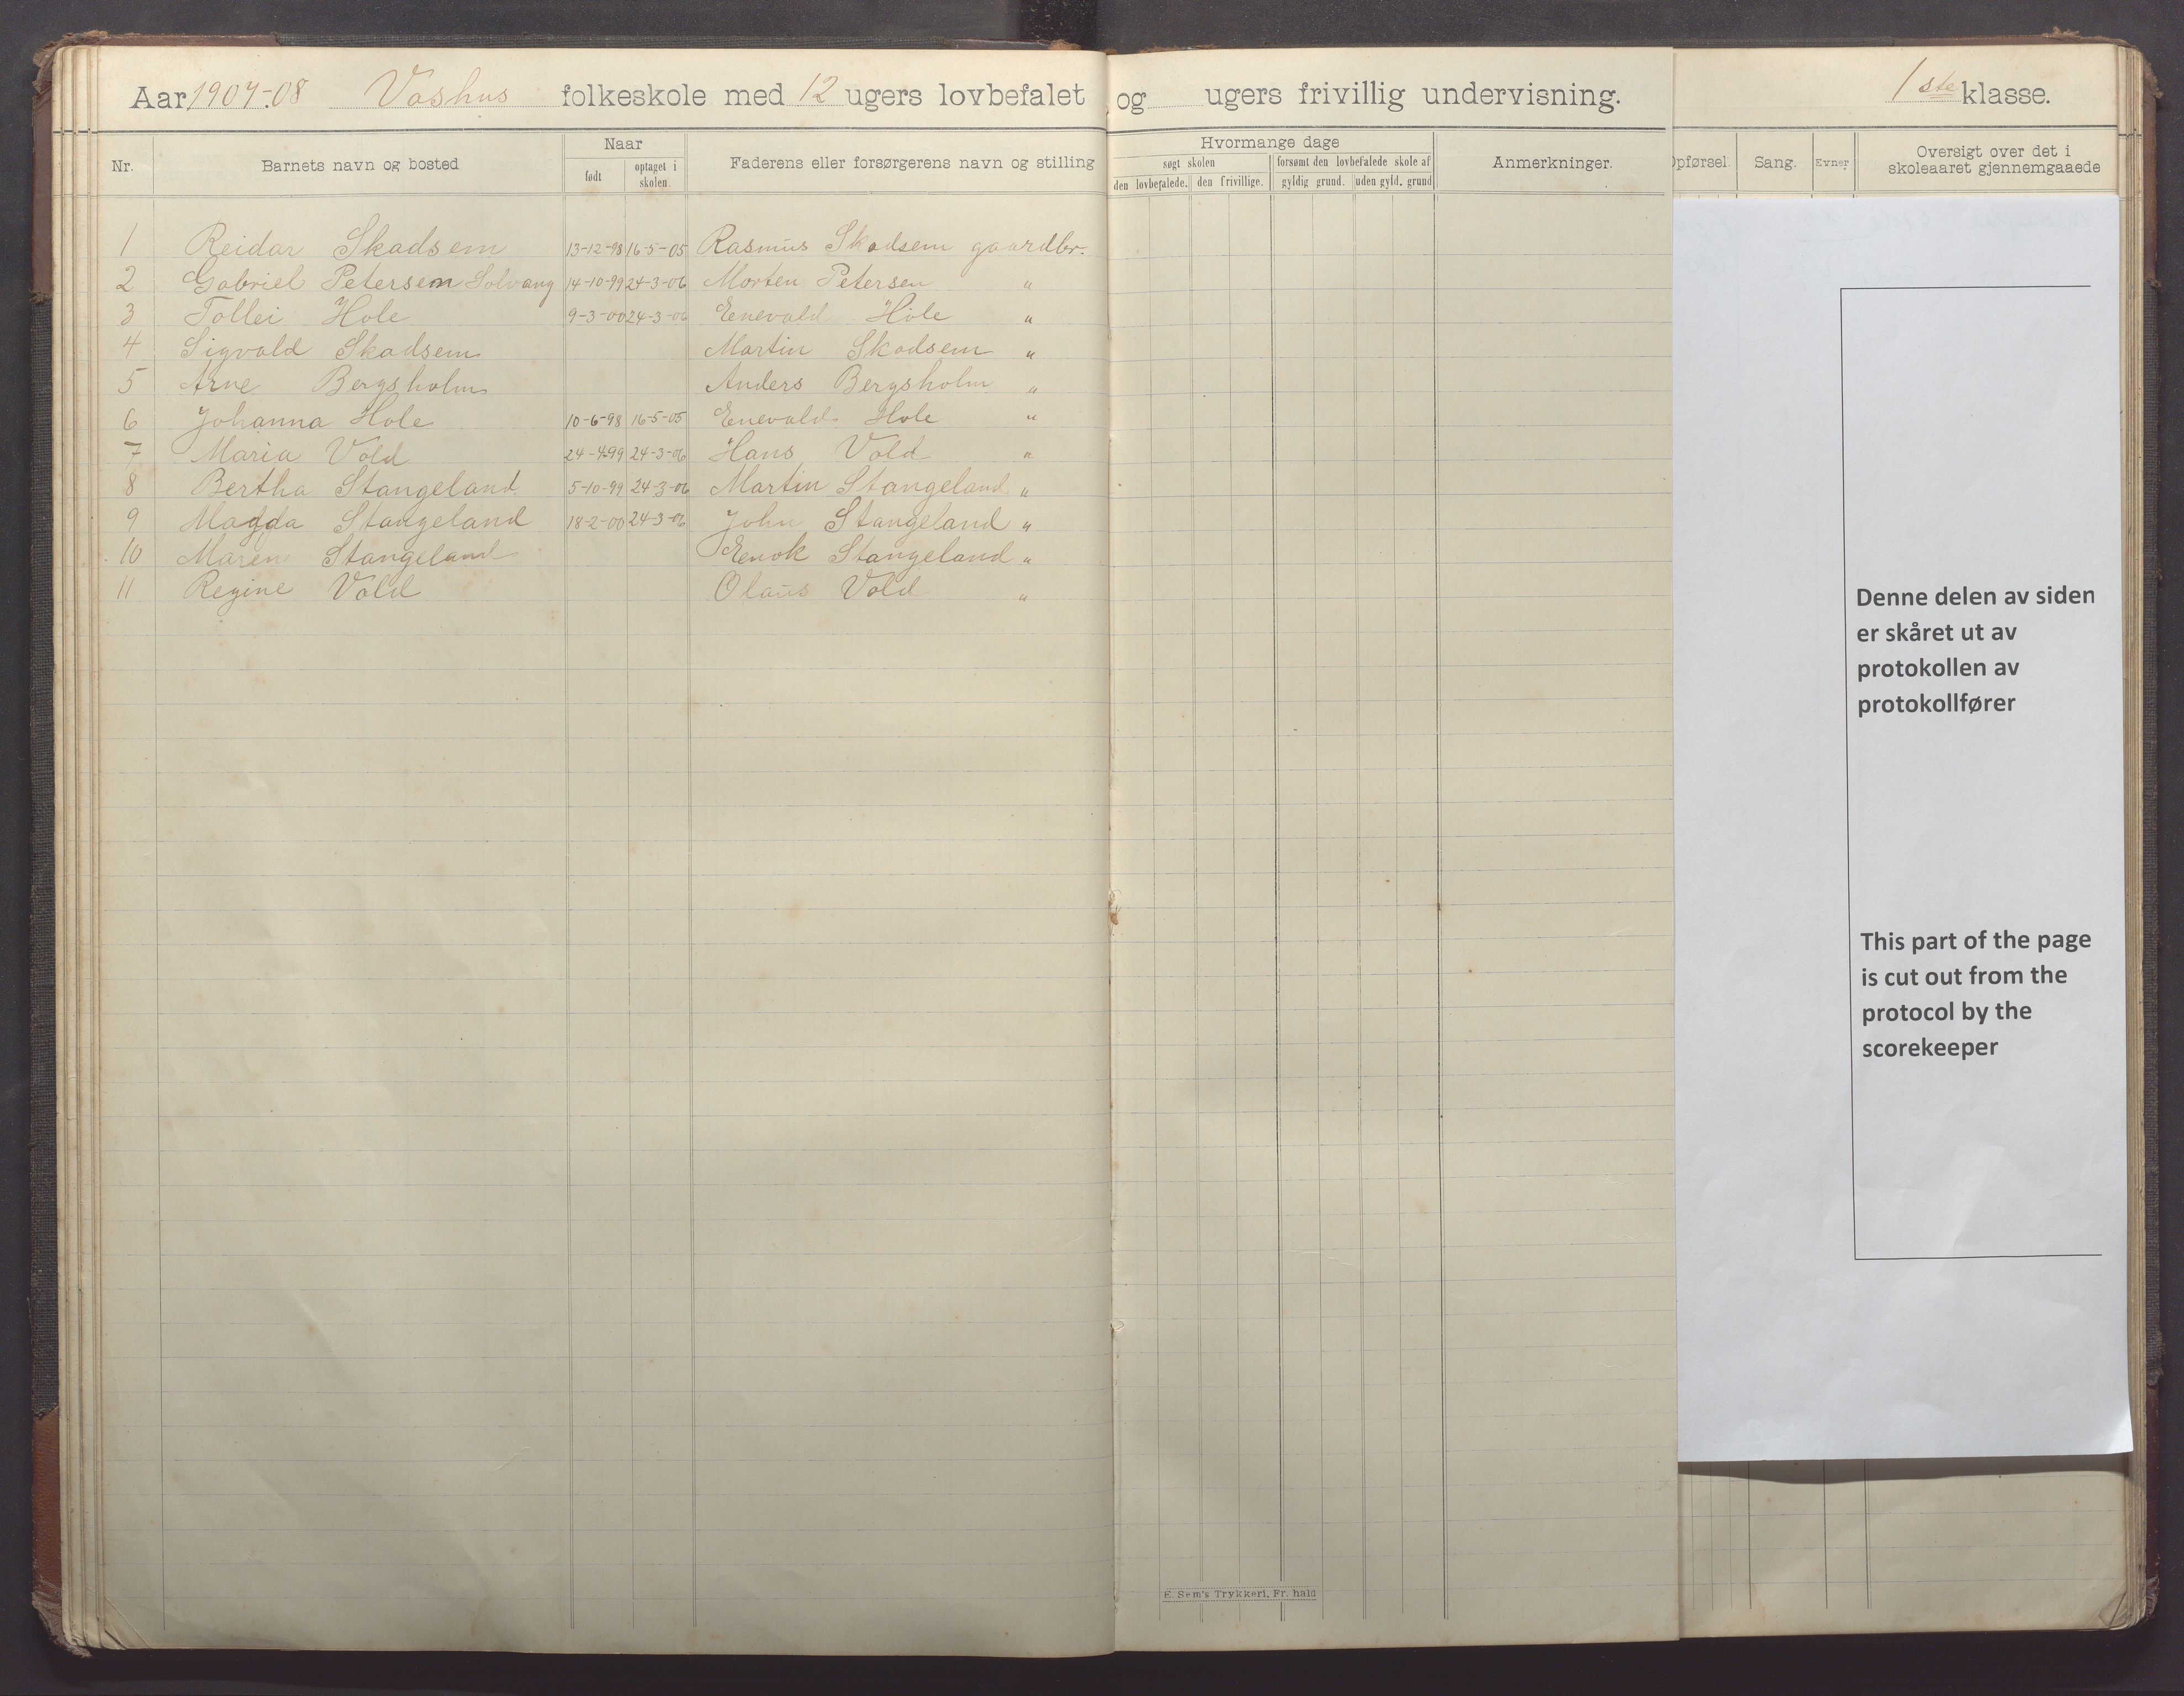 Aar 1907-08 Voshus folkeskole med 12 ugers lovbefalet og ugers frivillig undervisning. 1ste klasse.
Nr. Barnets navn og bosted Naar født optaget i skolen. Faderens eller forsørgerens navn og stilling Hvormange dage søgt skolen den lovbefalede. den frivillige. forsømt den lovbefalede skole af gyldig grund. uden gyld. grund Anmerkninger. Opførsel Sang. Evner Oversigt over det i skoleaaret gjennemgaaede
1 Reidar Skadsem 13-12-98 16-5-05 Rasmus Skadsem gaardbr.
2 Gabriel Petersen Solvang 14-10-99 24-3-06 Morten Petersen "
3 Tollei Hole 9-3-00 24-3-06 Enevald Hole "
4 Sigvald Skadsem Martin Skadsem "
5 Arne Bergsholm Anders Bergsholm "
6 Johanna Hole 10-6-98 16-5-05 Enevald Hole "
7 Maria Vold 24-4-99 24-3-06 Hans Vold "
8 Bertha Stangeland 5-10-99 24-3-06 Martin Stangeland "
9 Magda Stangeland 18-2-00 24-3-06 John Stangeland "
10 Maren Stangeland Enok Stangeland "
11 Regine Vold Olaus Vold "
Denne delen av siden
er skåret ut av
protokollen av
protokollfører
This part of the page
is cut out from the
protocol by the
scorekeeper
E. Sem's Trykkeri, Fr. hald